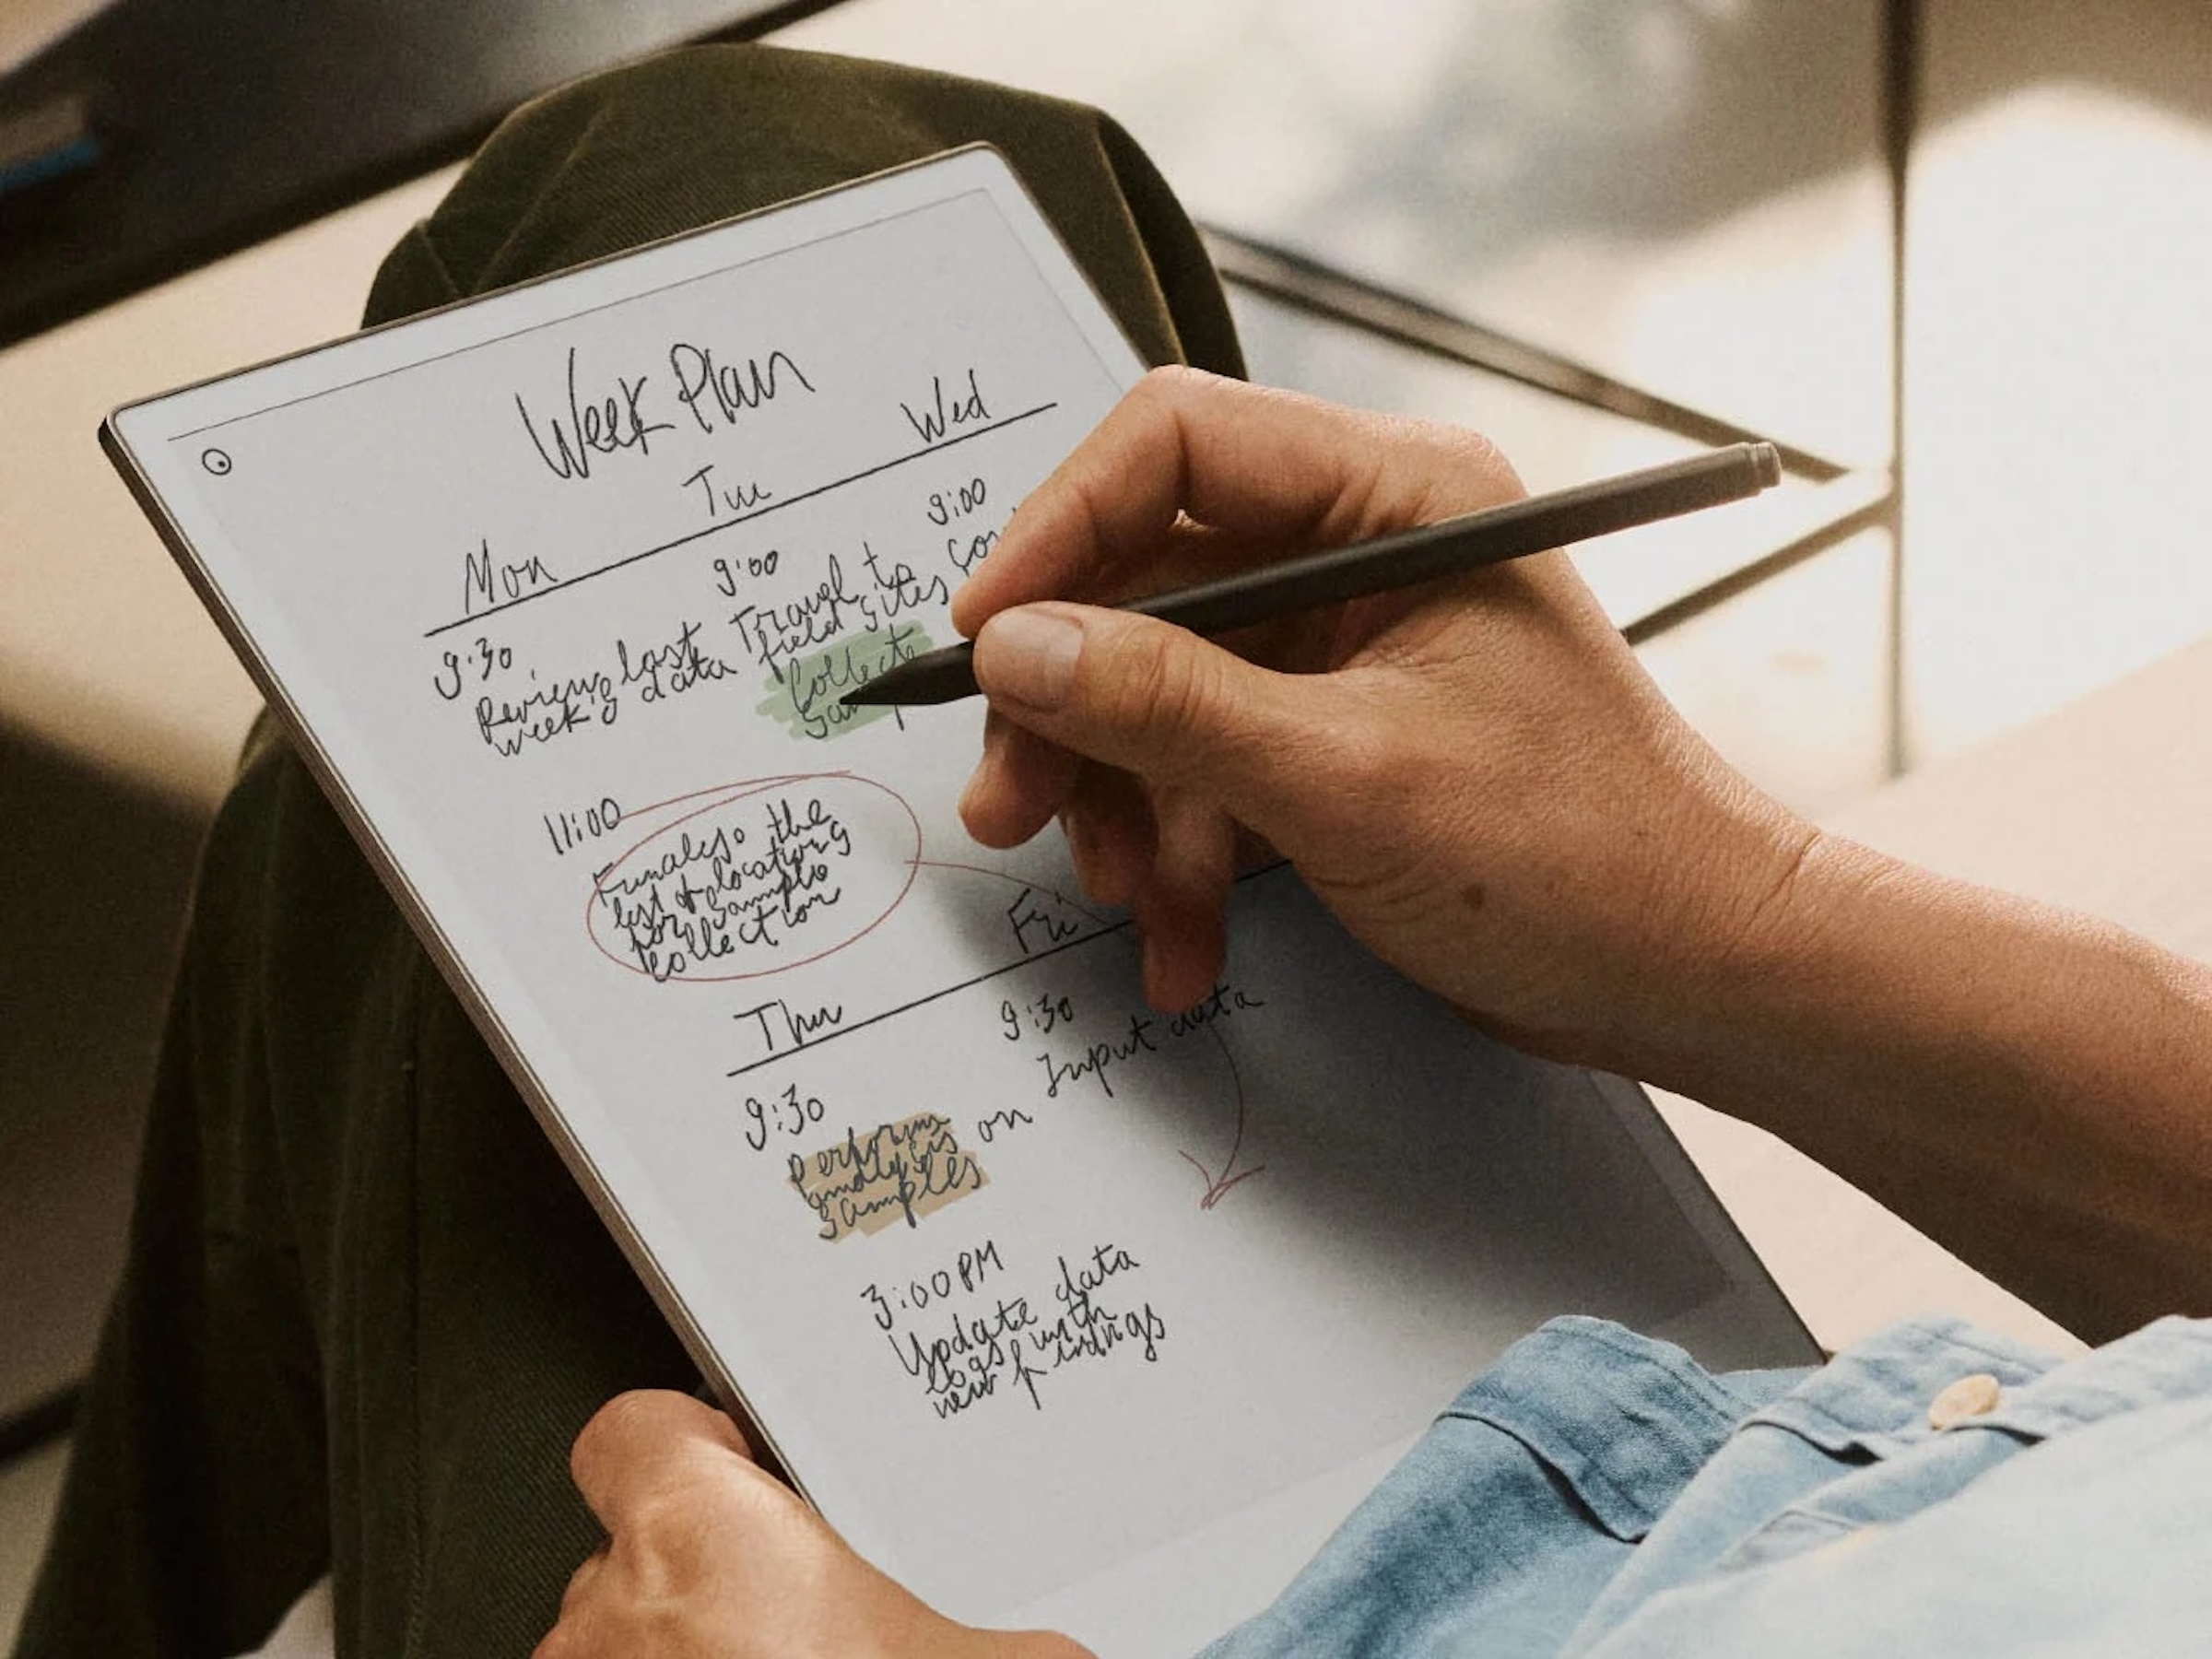 Week Plan
Mon
9:30
Review last
week's data
11:00
Finalize the
list of locations
for sample
collection
Tue
9:00
Travel to
field sites
Collect
Wed
9:00
Thu
9:30
Perform
analysis on
samples
3:00 PM
Update data
logs with
new findings
Fri
9:30
Input data